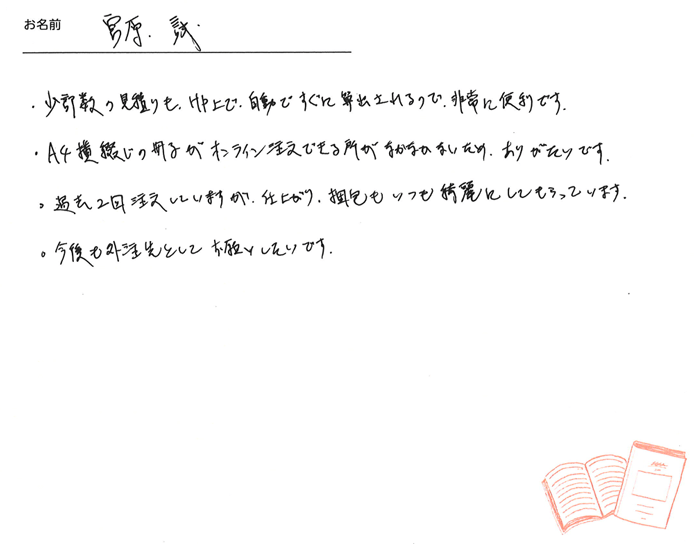 お名前 宮原 誠
・少部数の見積りも、HP上で、自動ですぐに算出されるので、非常に便利です。
・A4横綴じの冊子がオンライン注文できる所がなかなかないため、ありがたいです。
。過去2回注文していますが、仕上がり、梱包もいつも綺麗にしてもらっています。
。今後も外注先としてお願いしたいです。